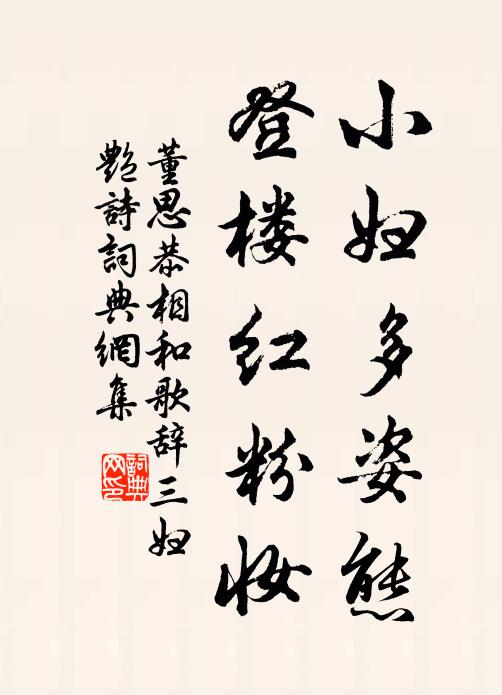 小妇多姿態
登楼红粉妆
董思恭相和歌辞三妇
艳詩詞典網集
詞典
网印